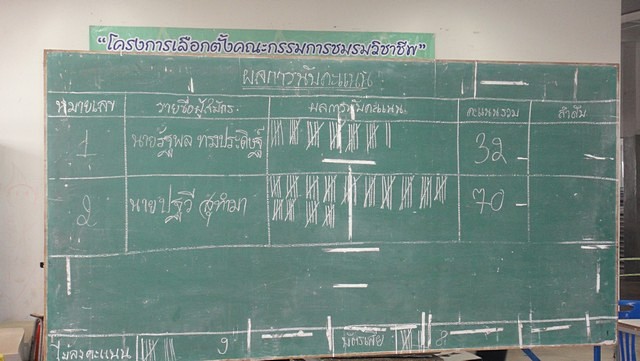 “โครงการเลือกตั้งคณะกรรมการชมรมวิชาชีพ”
ผลการนับคะแนน
หมายเลข รายชื่อผู้สมัคร ผลการนับคะแนน คะแนนรวม ลำดับ
1 นายรัฐพล ทรงประดิษฐ์ 32
2 นายปฐวี สุทำมา 70
ไม่ลงคะแนน 9 บัตรเสีย 8